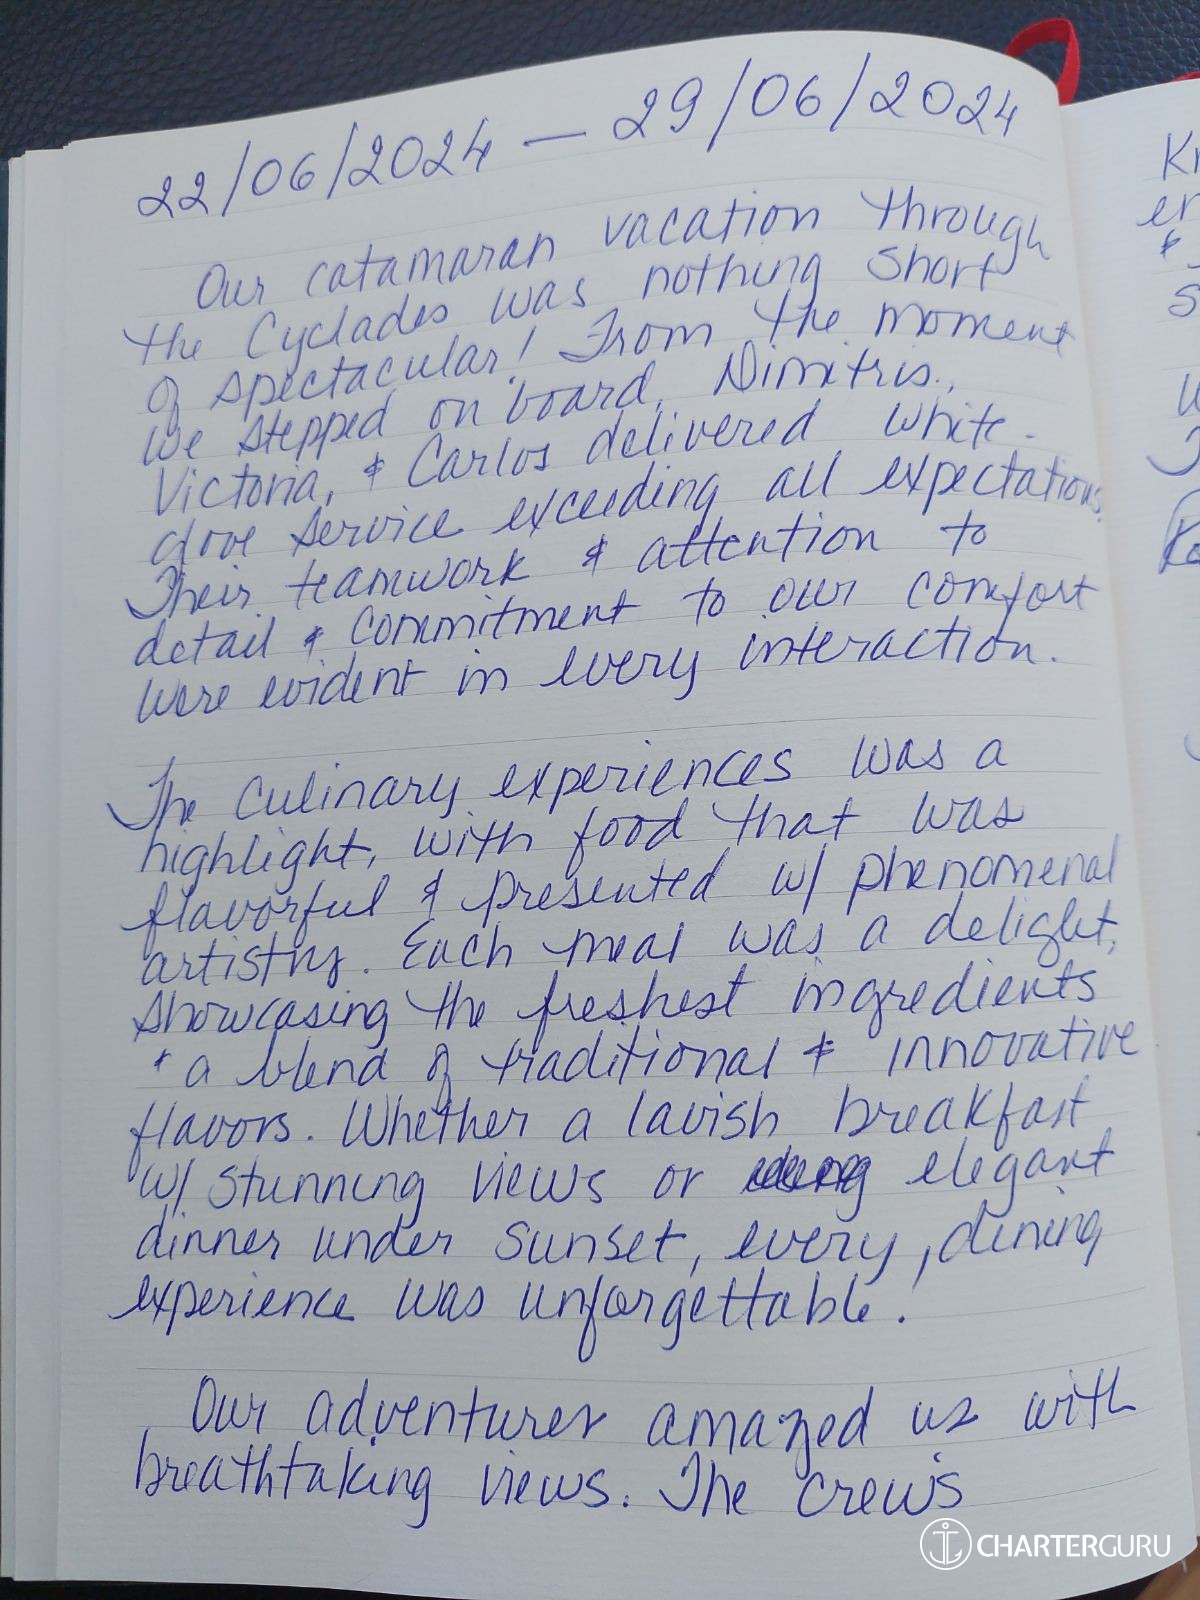 22/06/2024 — 29/06/2024
Our catamaran vacation through
the Cyclades was nothing short
of spectacular! From the moment
we stepped on board, Dimitris,
Victoria, & Carlos delivered white-
glove service exceeding all expectations.
Their teamwork & attention to
detail & commitment to our comfort
were evident in every interaction.
The culinary experiences was a
highlight, with food that was
flavorful & presented w/ phenomenal
artistry. Each meal was a delight,
showcasing the freshest ingredients
& a blend of traditional & innovative
flavors. Whether a lavish breakfast
w/ stunning views or elegant
dinner under sunset, every, dining
experience was unforgettable.
Our adventures amazed us with
breathtaking views. The crew's
CHARTERGURU
Kn
er
&
S